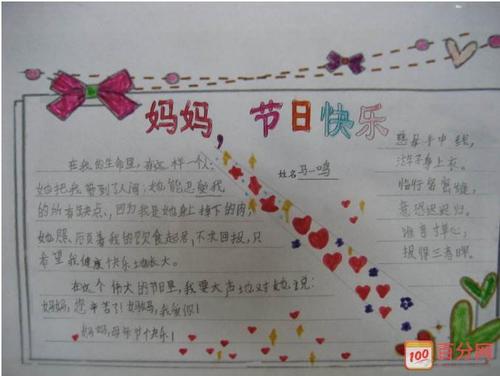 妈妈，节日快乐
姓名马一鸣
在我的生命里，有这样一个人：
她把我带到人间；她能忍受我
的所有缺点，因为我是她身上掉下的肉，
她照顾着我的饮食起居，不求回报，只
希望我健康快乐地长大。
在这个伟大的节日里，我要大声地对她说：
妈妈，您辛苦了！妈妈，我爱你！
妈妈，母亲节快乐！
慈母手中线，
游子身上衣。
临行密密缝，
意恐迟迟归。
谁言寸草心，
报得三春晖。
100
百分网